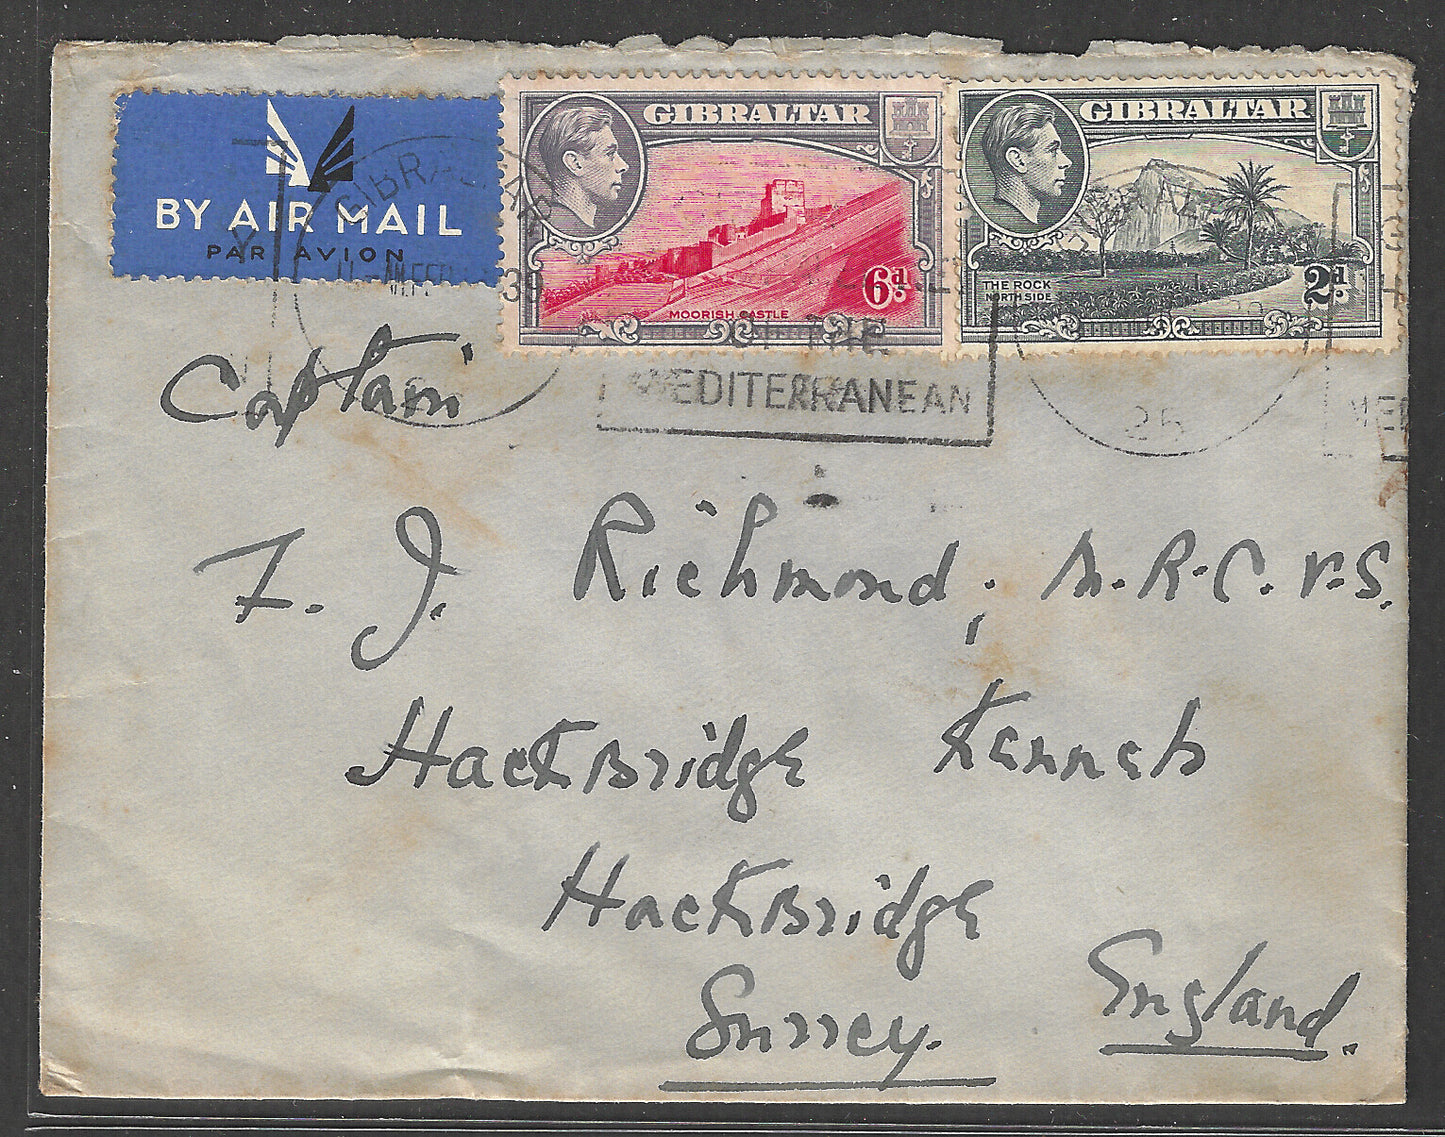 BY AIR MAIL
PAR AVION
GIBRALTAR
MOORISH CASTLE
6d
GIBRALTAR
THE ROCK
NORTH SIDE
2d
GIBRALTAR
THE
MEDITERRANEAN
25
Captain
F. J. Richmond, M.R.C.V.S.
HackBridge Kennels
HackBridge
Surrey.
England.